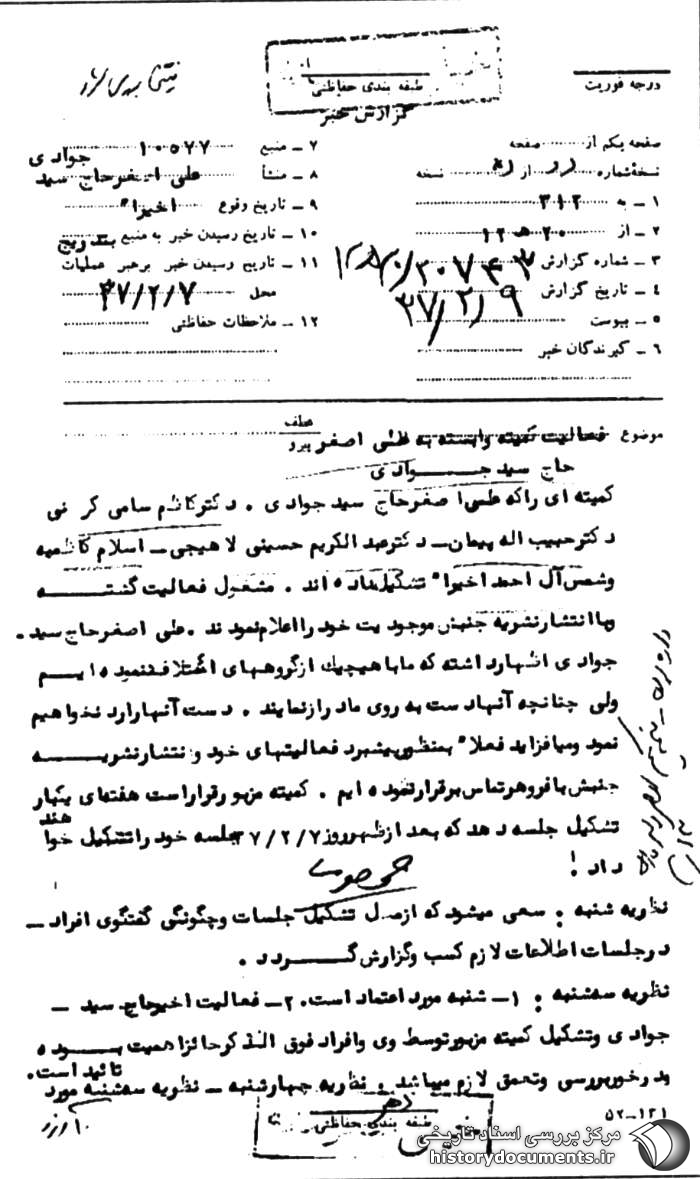 طبقه بندی حفاظتی
گزارش خبر
درجه فوریت
صفحه یکم از صفحه
نسخه شماره از نسخه
۱ ـ به ۳۱۲
۲ ـ از ۲۰ هـ ۱۲
۳ ـ شماره گزارش
۴ ـ تاریخ گزارش ۳۷/۲/۹
۵ ـ پیوست
۶ ـ گیرندگان خبر
۷ ـ منبع ۱۰۵۷۷
۸ ـ منشأ علی اصغر حاج سید جوادی
۹ ـ تاریخ وقوع اخیرا"
۱۰ ـ تاریخ رسیدن خبر به منبع بتدریج
۱۱ ـ تاریخ رسیدن خبر برهبر عملیات
محل ۳۷/۲/۷
۱۲ ـ ملاحظات حفاظتی
عطف
پیرو
موضوع فعالیت کمیته وابسته به علی اصغر
حاج سید جوادی
کمیته ای راکه علی اصغرحاج سید جوادی . دکترکاظم سامی کرمانی
دکترحبیب اله پیمان ـ دکترعبدالکریم حسینی لاهیجی ـ اسلام کاظمیه
وشمس آل احمد اخیرا" تشکیل داده اند . مشغول فعالیت گشته
وباانتشارنشریه جنبش موجودیت خود رااعلام نمودند . علی اصغرحاج سید ـ
جوادی اظهارداشته که مابا هیچیک ازگروههای ائتلاف ننموده ایم
ولی چنانچه آنهادست به روی مادرازنمایند . دست آنهارارد نخواهیم
نمود ومیافزاید فعلا" بمنظورپیشبرد فعالیتهای خود وانتشارنشریه
جنبش بافروهرتماس برقرارنموده ایم . کمیته مزبورقراراست هفتهای یکبار
تشکیل جلسه دهد که بعد ازظهرروز ۳۷/۲/۷ جلسه خود راتشکیل خواهند
داد .
نظریه شنبه . سعی میشود که ازمحل تشکیل جلسات وچگونگی گفتگوی افراد ـ
درجلسات اطلاعات لازم کسب وگزارش گردد .
نظریه سه شنبه . ۱ ـ شنبه مورد اعتماد است. ۲ ـ فعالیت اخیرحاج سید ـ
جوادی وتشکیل کمیته مزبورتوسط وی وافراد فوق الذکرحائزاهمیت بوده
ودرخوربررسی وتعمق لازم میباشد . نظریه چهارشنبه ـ نظریه سه شنبه مورد تائید است.
طبقه بندی حفاظتی
۵۲-۱۳۱
مرکز بررسی اسناد تاریخی
historydocuments.ir